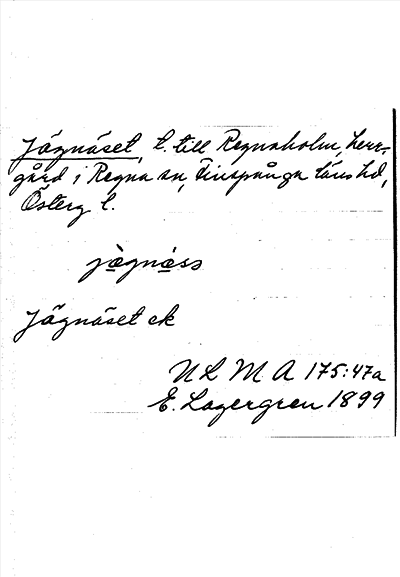 Jägnäset, t. till Regnaholm, herr-
gård i Regna sn, Finspånga läns hd,
Österg l.
jägnäss
Jägnäset ek
ULMA 175:47a
E. Lagergren 1899